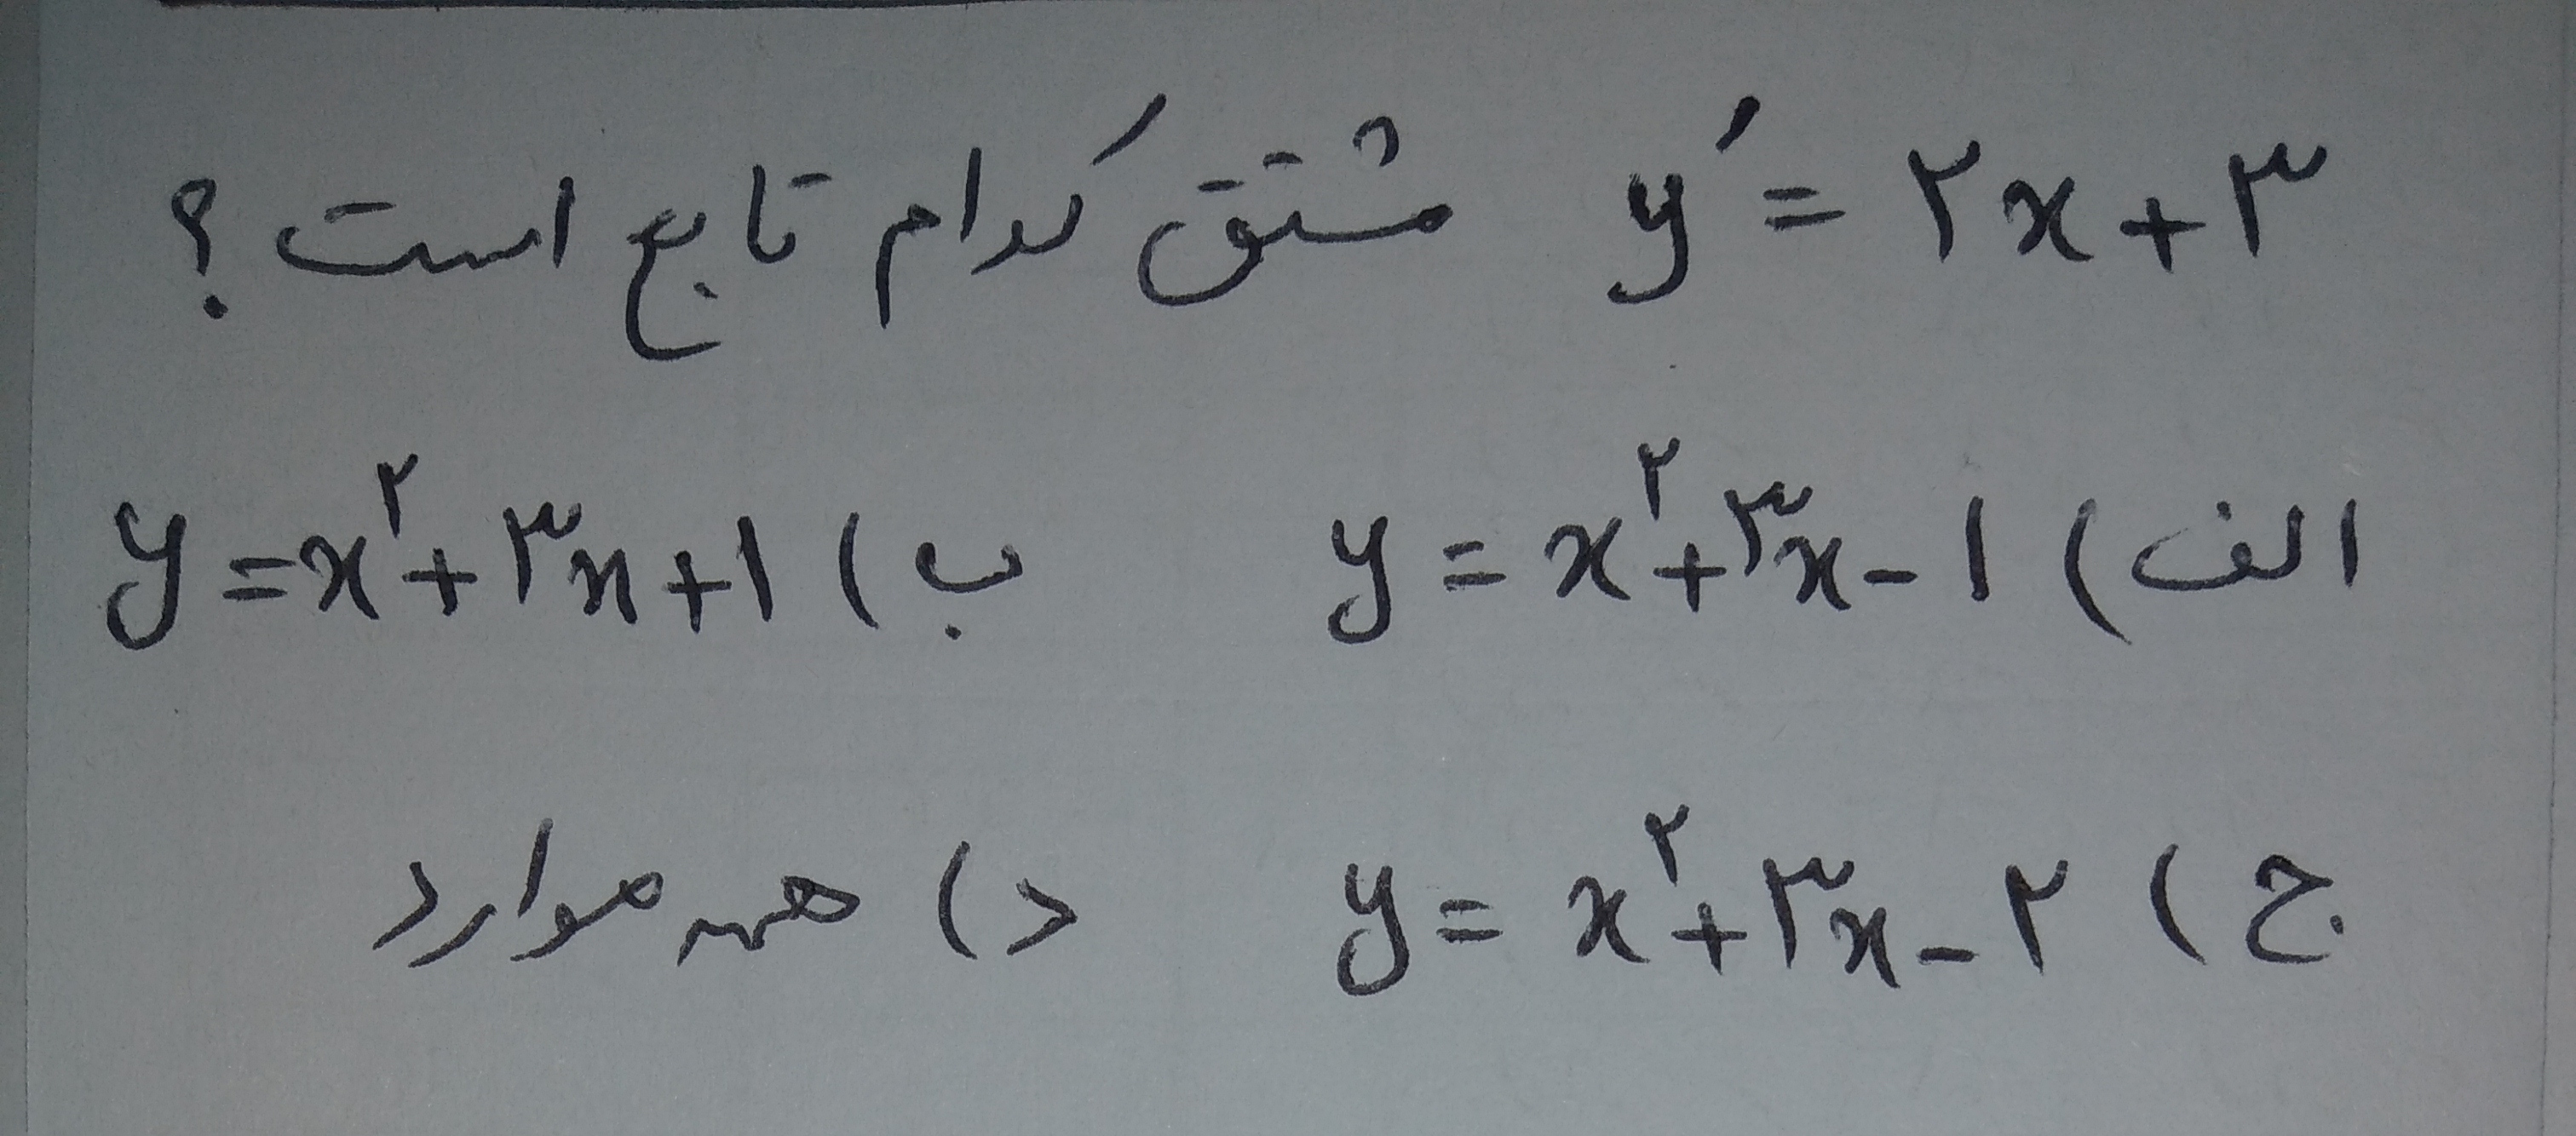 y′ = ۲x + ۳ مشتق کدام تابع است ؟
الف) y = x^۲ + ۳x - ۱ ب) y = x^۲ + ۳x + ۱
ج) y = x^۲ + ۳x - ۲ د) همه موارد